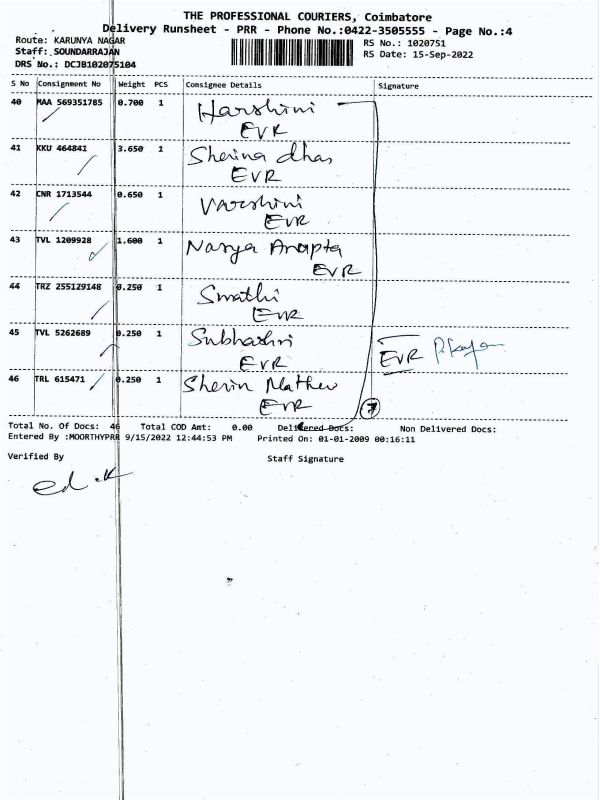 THE PROFESSIONAL COURIERS, Coimbatore
Delivery Runsheet - PRR - Phone No.:0422-3505555 - Page No.:4
Route: KARUNYA NAGAR
Staff: SOUNDARRAJAN
DRS No.: DCJB102075104
RS No.: 1020751
RS Date: 15-Sep-2022
S No Consignment No Weight PCS Consignee Details Signature
40 MAA 569351785 0.700 1 Harshini
EVR
41 KKU 464841 3.650 1 Sherina dhas
EVR
42 CNR 1713544 0.650 1 Varshini
EVR
43 TVL 1209928 1.600 1 Nasya
EVR
44 TRZ 255129148 0.250 1 Smathi
EVR
45 TVL 5262689 0.250 1 Subhashri
EVR EVR
46 TRL 615471 0.250 1 Sherin Mathew
EVR 7
Total No. Of Docs: 46 Total COD Amt: 0.00 Delivered Docs: Non Delivered Docs:
Entered By :MOORTHYPRR 9/15/2022 12:44:53 PM Printed On: 01-01-2009 00:16:11
Verified By Staff Signature